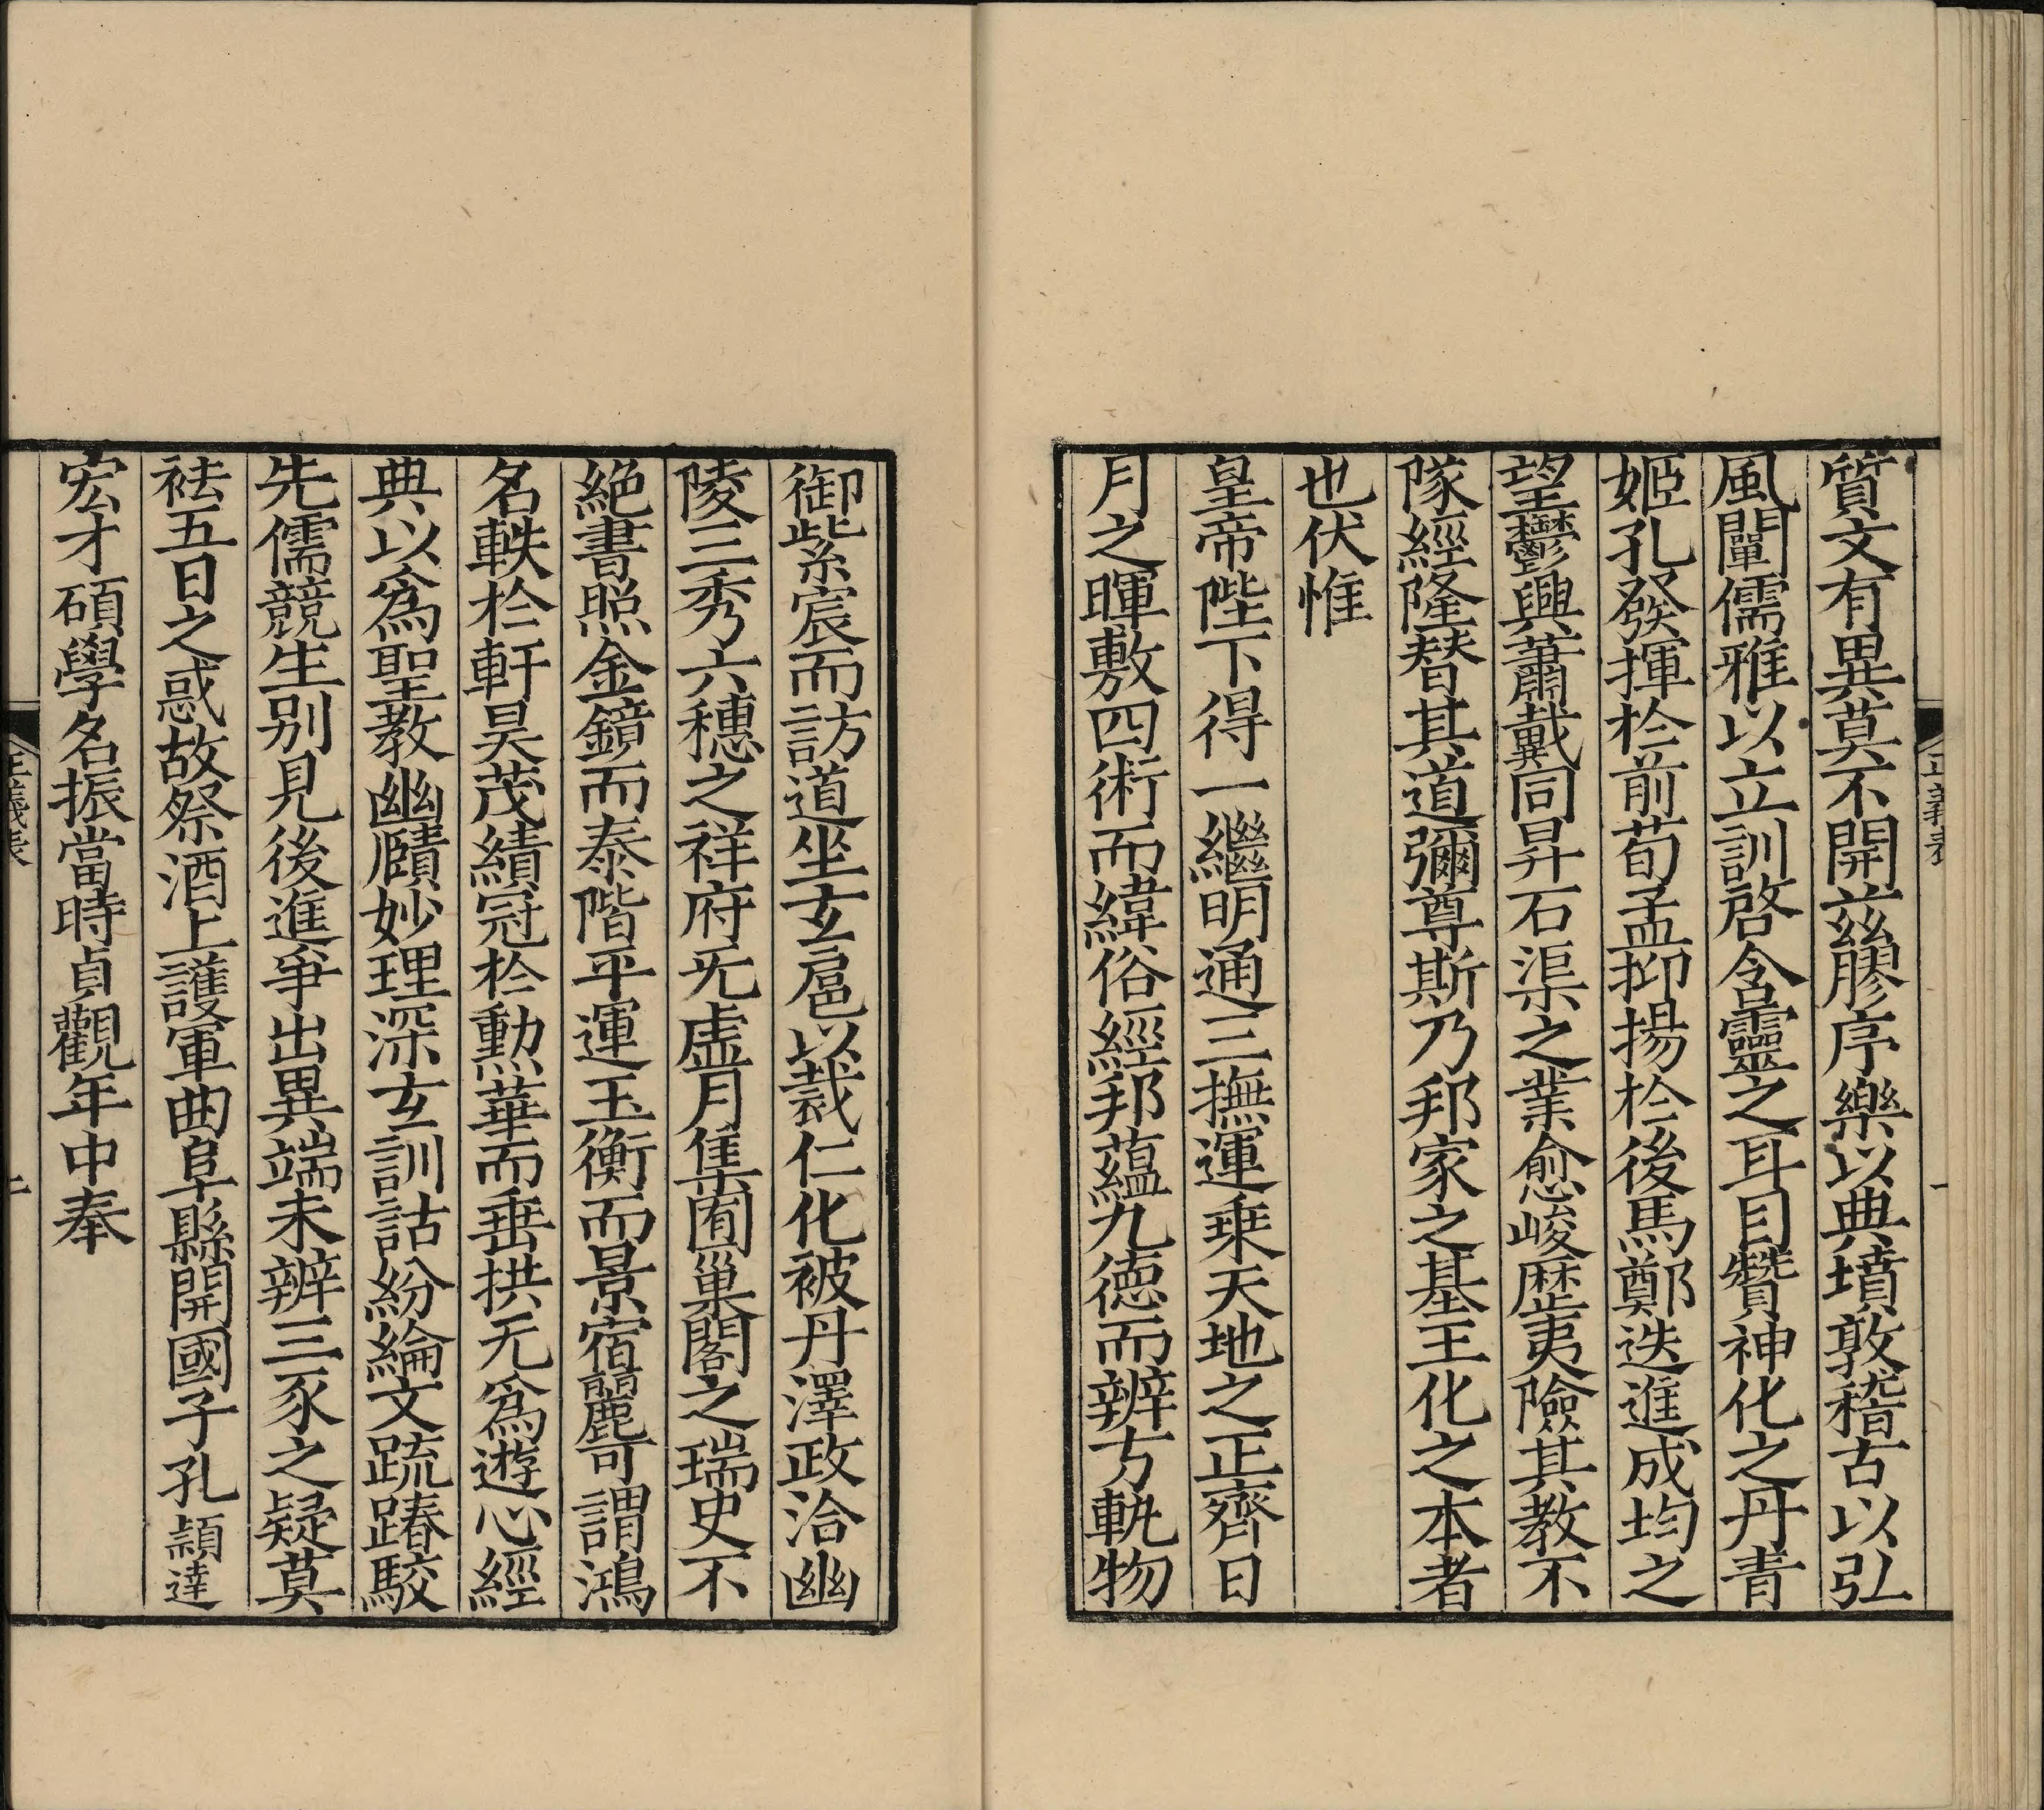 質文有異莫不開兹膠序樂以典墳敦稽古以弘
風闡儒雅以立訓啓含靈之耳目贊神化之丹青
姬孔發揮於前荀孟抑揚於後馬鄭迭進成均之
望鬱興蕭戴同昇石渠之業愈峻歴夷險其教不
隊經隆替其道彌尊斯乃邦家之基王化之本者
也伏惟
皇帝陛下得一繼明通三撫運乗天地之正齊日
月之暉敷四術而緯俗經邦蘊九德而辨方軌物
御紫宸而訪道坐玄扈以裁仁化被丹澤政洽幽
陵三秀六穗之祥府无虚月集囿巢閣之瑞史不
絶書照金鏡而泰階平運玉衡而景宿麗可謂鴻
名軼於軒昊茂績冠於勲華而垂拱无爲遊心經
典以爲聖教幽賾妙理深玄訓詁紛綸文䟽踳駮
先儒競生别見後進爭出異端未辨三豕之疑莫
祛五日之惑故祭酒上護軍曲阜縣開國子孔頴達
宏才碩學名振當時貞觀年中奉